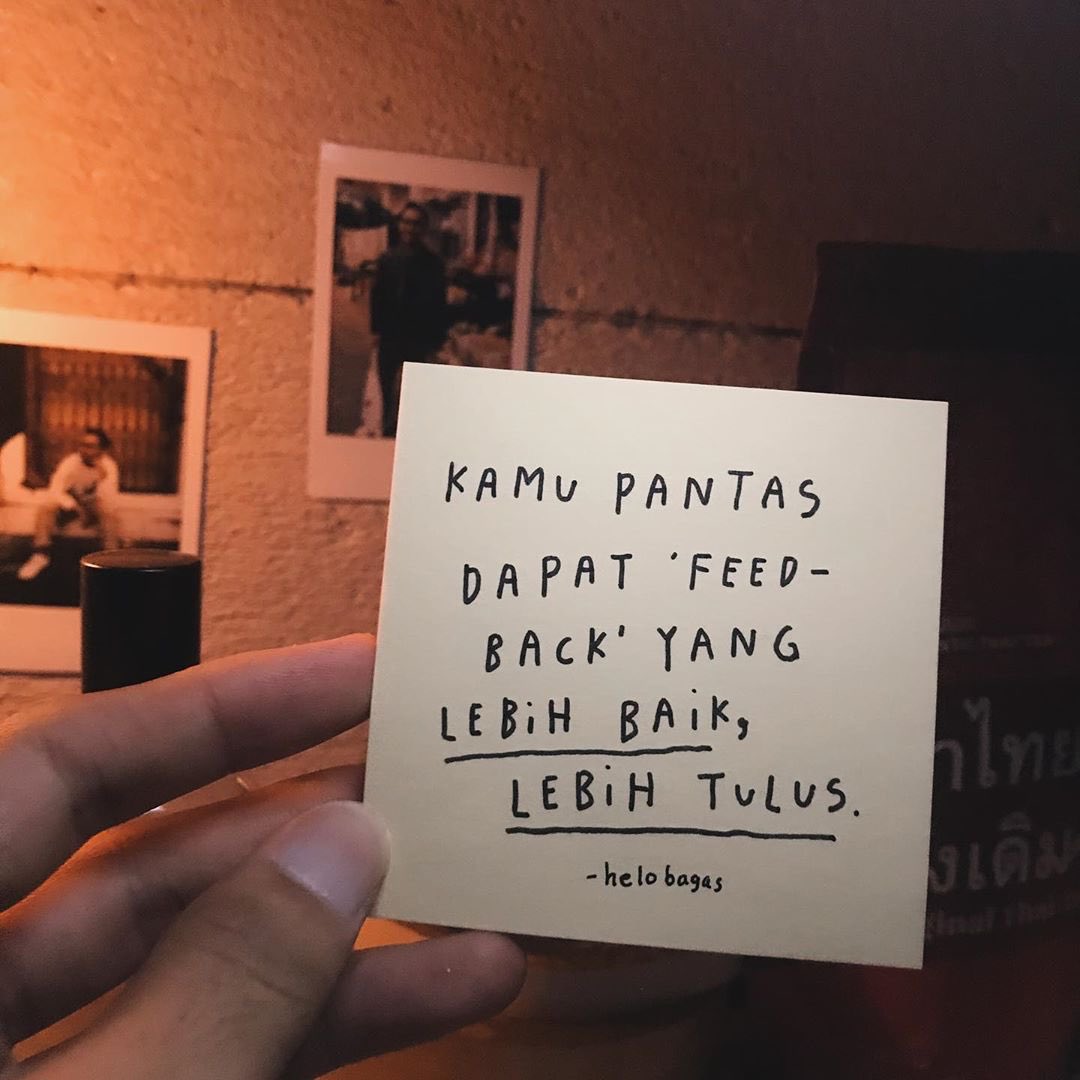 KAMU PANTAS
DAPAT 'FEED-
BACK' YANG
LEBiH BAiK,
LEBiH TULUS.
-helobagas